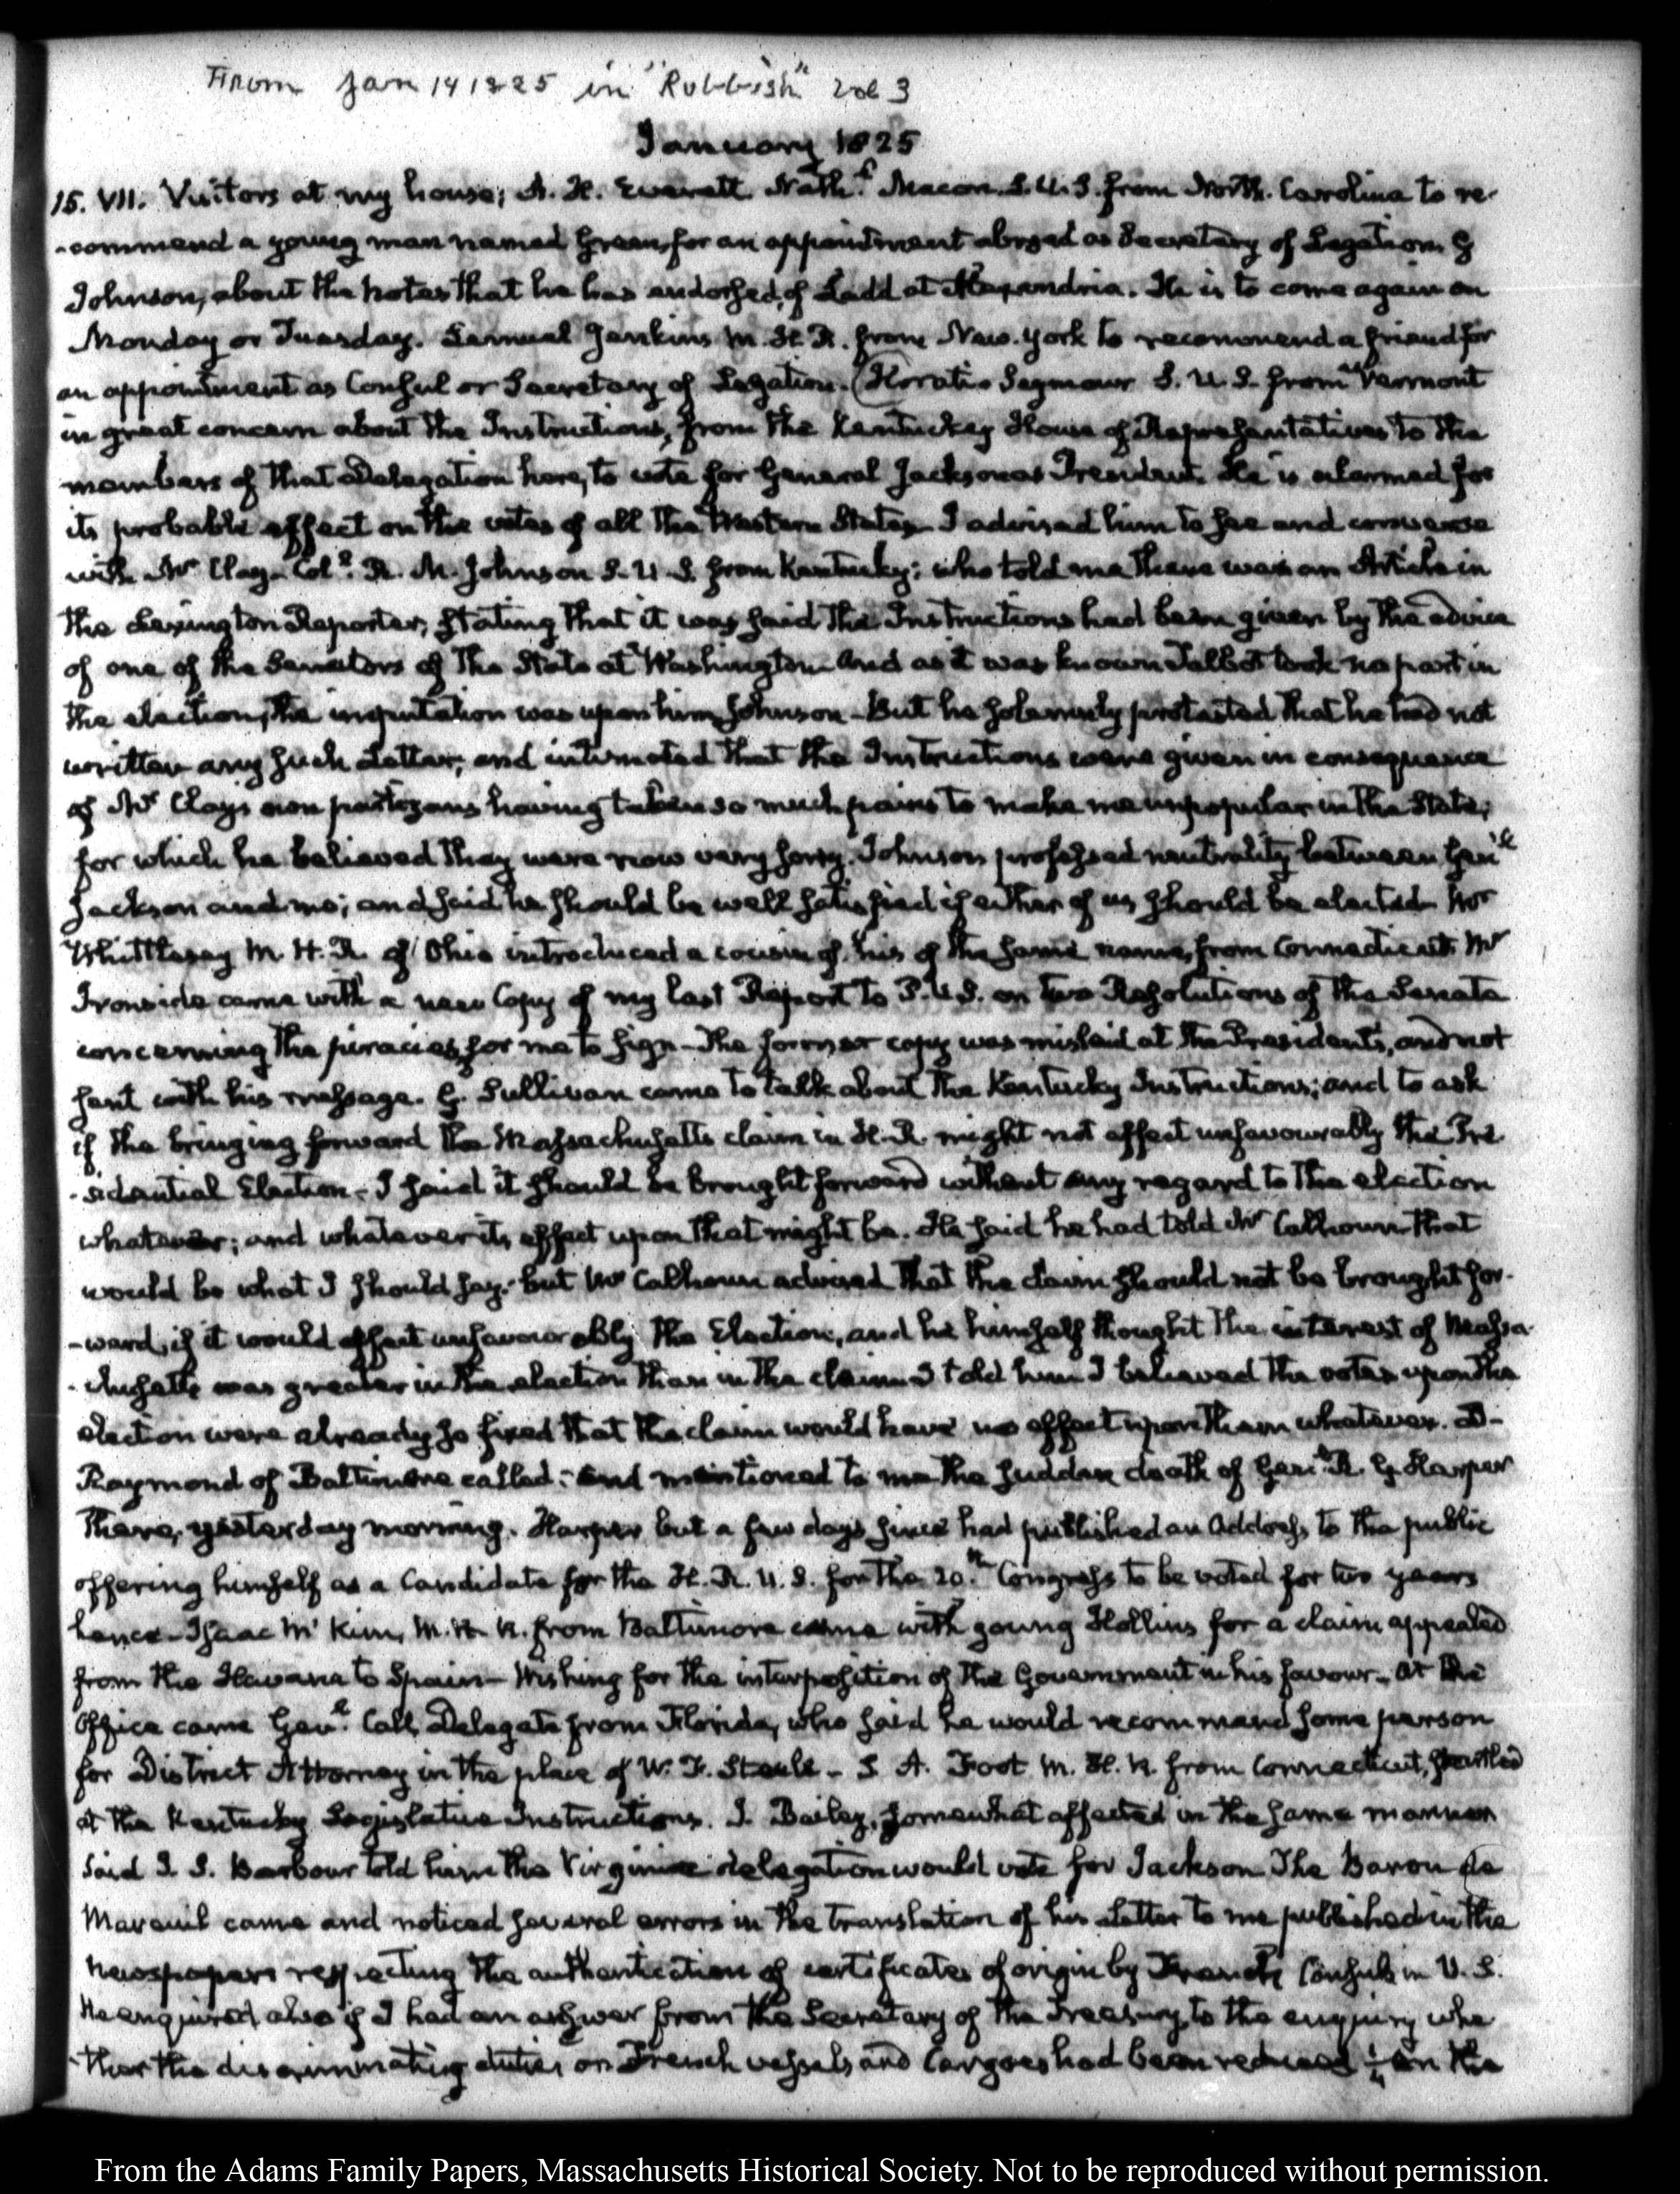 From Jan 14 1825 in "Rubbish" vol 3
January 1825
15. VII. Visitors at my house; A. H. Everett. Nath.l Macon S.U.S. from North-Carolina to re-
-commend a young man named Green, for an appointment abroad as Secretary of Legation. G
Johnson, about the notes that he has endorsed, of Ladd at Alexandria. He is to come again on
Monday or Tuesday. Lemuel Jenkins M. H. R. from New-York to recommend a friend for
an appointment as Consul or Secretary of Legation. (Horatio Seymour S. U. S. from Vermont
in great concern about the Instructions, from the Kentucky House of Representatives to the
members of that Delegation here, to vote for General Jackson as President. He is alarmed for
its probable effect on the votes of all the Western States. I advised him to see and converse
with Mr Clay. Col.l R. M. Johnson S. U. S. from Kentucky; who told me there was an Article in
the Lexington Reporter, stating that it was said the Instructions had been given by the advice
of one of the Senators of the State at Washington. And as it was known Talbot took no part in
the election, the imputation was upon him Johnson - But he solemnly protested that he had not
written any such Letter; and intimated that the Instructions were given in consequence
of Mr Clay's own partizans having taken so much pains to make me unpopular in the State;
for which he believed they were now very sorry. Johnson professed neutrality between Gen.l
Jackson and me; and said he should be well satisfied if either of us should be elected. Mr
Whittlesey M. H. R. of Ohio introduced a cousin of his of the same name, from Connecticut. Mr
Ironside came with a new Copy of my last Report to P.U.S. on two Resolutions of the Senate
concerning the piracies, for me to sign - The former copy was mislaid at the President's, and not
sent with his message. G. Sullivan came to talk about the Kentucky Instructions; and to ask
if the bringing forward the Massachusetts claim in H. R. might not affect unfavourably the Pre-
-sidential Election - I said it should be brought forward without any regard to the election
whatever; and whatever its effect upon that might be. He said he had told Mr Calhoun that
would be what I should say: but Mr Calhoun advised that the claim should not be brought for-
-ward, if it would affect unfavourably the Election, and he himself thought the interest of Massa-
-chusetts was greater in the election than in the claim. I told him I believed the votes upon the
election were already so fixed that the claim would have no effect upon them whatever. D-
Raymond of Baltimore called; and mentioned to me the sudden death of Gen.l R. G. Harper
there, yesterday morning. Harper but a few days since had published an Address to the public
offering himself as a Candidate for the H. R. U. S. for the 20.th Congress to be voted for two years
hence - Isaac McKim, M. H. R. from Baltimore came with young Hollins for a claim appealed
from the Havana to Spain - Wishing for the interposition of the Government in his favour - At the
Office came Gen.l Call, Delegate from Florida, who said he would recommend some person
for District Attorney in the place of W. F. Steele - S. A. Foot M. H. R. from Connecticut, startled
at the Kentucky Legislative Instructions. J. Bailey, somewhat affected in the same manner
said J. S. Barbour told him the Virginia delegation would vote for Jackson. The Baron de
Mareuil came and noticed several errors in the translation of his Letter to me published in the
Newspapers respecting the authentication of certificates of origin by French Consuls in U. S.
He enquired also if I had an answer from the Secretary of the Treasury, to the enquiry whe-
-ther the discriminating duties on French vessels and Cargoes had been reduced 1/4 on the
From the Adams Family Papers, Massachusetts Historical Society. Not to be reproduced without permission.